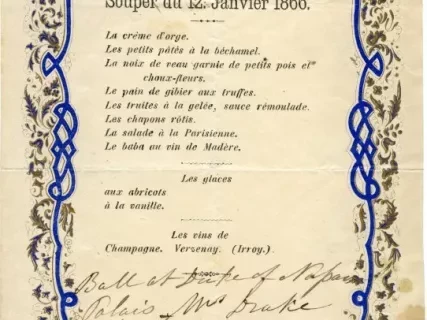 Souper du 12. Janvier 1866.
La crème d'orge.
Les petits pâtés à la béchamel.
La noix de veau garnie de petits pois et
choux-fleurs.
Le pain de gibier aux truffes.
Les truites à la gelée, sauce rémoulade.
Les chapons rôtis.
La salade à la Parisienne.
Le baba au vin de Madère.
Les glaces
aux abricots
à la vanille.
Les vins de
Champagne. Verzenay. (Irroy.)
Ball at Duke of Nassau
Palais Mrs Drake